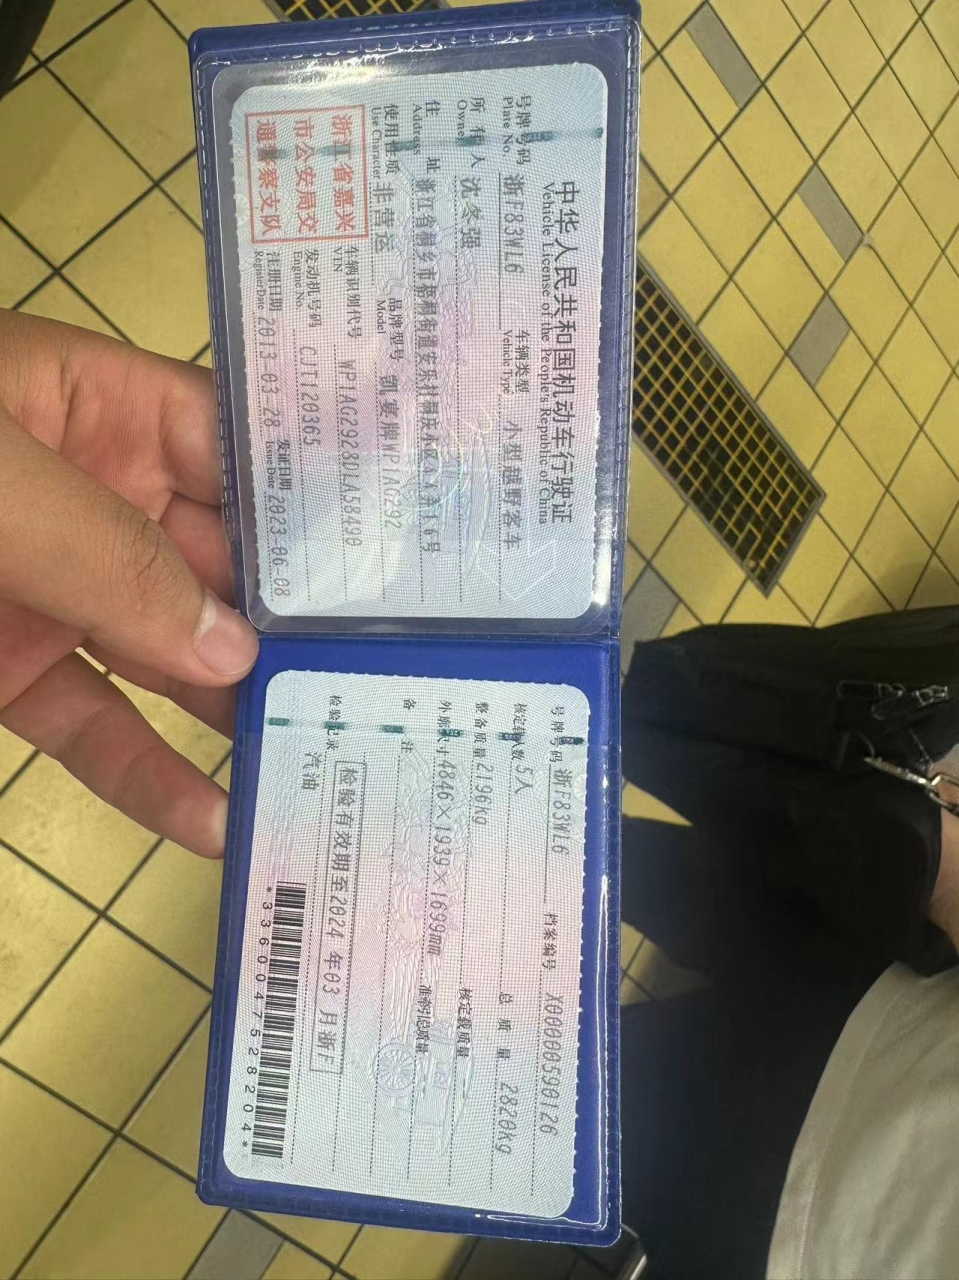 中华人民共和国机动车行驶证
Vehicle License of the People's Republic of China
号牌号码 浙F83WL6 车辆类型 小型越野客车
Plate No. Vehicle Type
所有人 沈冬强
Owner
住址 浙江省桐乡市梧桐街道安乐村
Address
使用性质 非营运 品牌型号 凯宴牌WP1AG292
Use Character Model
浙江省嘉兴
市公安局交
通警察支队
车辆识别代号 WP1AG2923DLA58490
VIN
发动机号码 CJT120365
Engine No.
注册日期 2013-03-28 发证日期 2023-06-08
Register Date Issue Date
号牌号码 浙F83WL6 档案编号 X00000590126
核定载人数 5人 总质量 2820kg
整备质量 2196kg 核定载质量
外廓尺寸 4846×1939×1699mm 准牵引总质量
备注
检验有效期至2024年03月浙F
检验记录 汽油
*3360047528204*